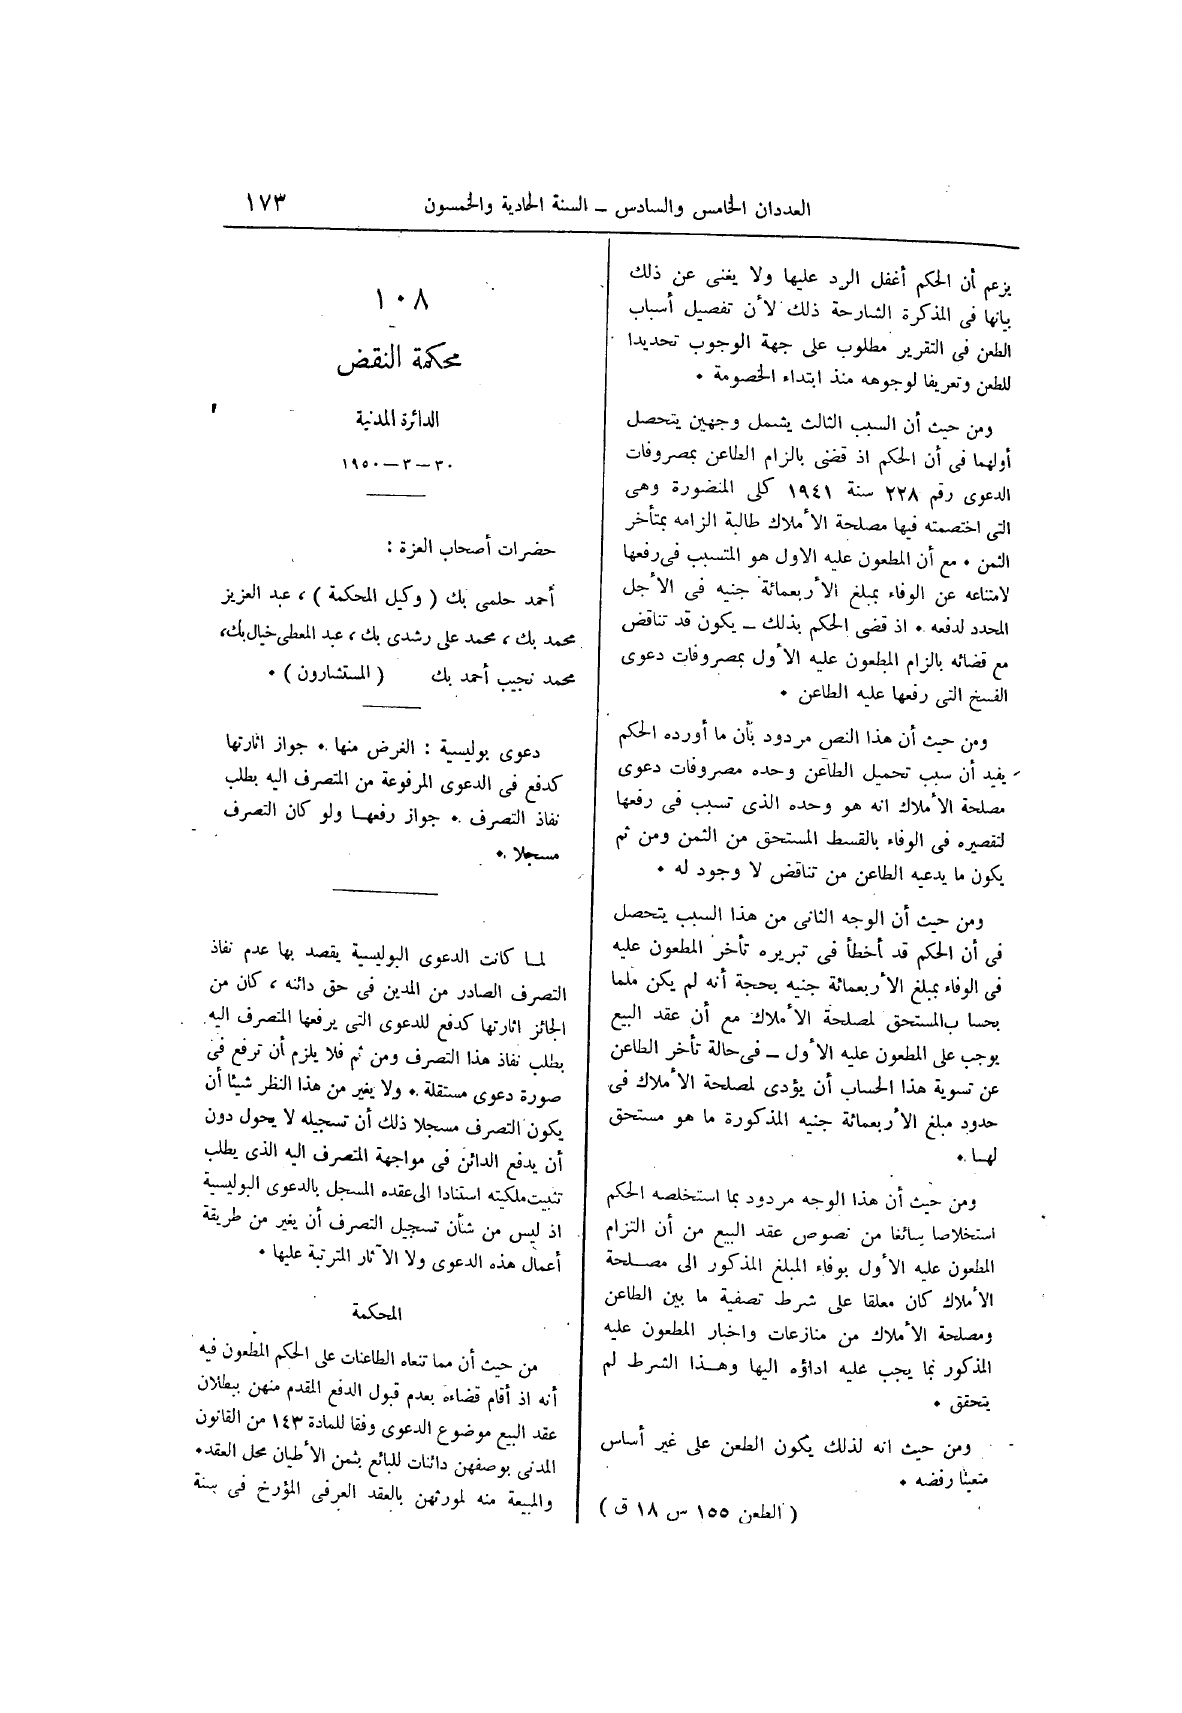 العددان الخامس والسادس – السنة الحادية والخمسون
١٧٣
يزعم أن الحكم أغفل الرد عليها ولا يغنى عن ذلك
بيانها فى المذكرة الشارحة ذلك لأن تفصيل أسباب
الطعن فى التقرير مطلوب على جهة الوجوب تحديدا
للطعن وتعريفا لوجوهه منذ ابتداء الخصومة •
ومن حيث أن السبب الثالث يشمل وجهين يتحصل
أولهما فى أن الحكم اذ قضى بالزام الطاعن بمصروفات
الدعوى رقم ٢٢٨ سنة ١٩٤١ كلى المنصورة وهى
التى اختصمته فيها مصلحة الأملاك طالبة الزامه بمتأخر
الثمن • مع أن المطعون عليه الاول هو المتسبب فى رفعها
لامتناعه عن الوفاء بمبلغ الأربعمائة جنيه فى الأجل
المحدد لدفعه • اذ قضى الحكم بذلك – يكون قد تناقض
مع قضائه بالزام المطعون عليه الأول بمصروفات دعوى
الفسخ التى رفعها عليه الطاعن •
ومن حيث أن هذا النص مردود بأن ما أورده الحكم
يفيد أن سبب تحميل الطاعن وحده مصروفات دعوى
مصلحة الأملاك انه هو وحده الذى تسبب فى رفعها
لتقصيره فى الوفاء بالقسط المستحق من الثمن ومن ثم
يكون ما يدعيه الطاعن من تناقض لا وجود له •
ومن حيث أن الوجه الثانى من هذا السبب يتحصل
فى أن الحكم قد أخطأ فى تبريره تأخر المطعون عليه
فى الوفاء بمبلغ الأربعمائة جنيه بحجة أنه لم يكن ملما
بحساب المستحق لمصلحة الأملاك مع أن عقد البيع
يوجب على المطعون عليه الأول – فى حالة تأخر الطاعن
عن تسوية هذا الحساب أن يؤدى لمصلحة الأملاك فى
حدود مبلغ الأربعمائة جنيه المذكورة ما هو مستحق
لهـا •
ومن حيث أن هذا الوجه مردود بما استخلصه الحكم
استخلاصا سائغا من نصوص عقد البيع من أن التزام
المطعون عليه الأول بوفاء المبلغ المذكور الى مصـلحة
الأملاك كان معلقا على شرط تصفية ما بين الطاعن
ومصلحة الأملاك من منازعات واخبار المطعون عليه
المذكور بما يجب عليه اداؤه اليها وهـذا الشرط لم
يتحقق •
ومن حيث انه لذلك يكون الطعن على غير أساس
متعينا رفضه •
( الطعن ١٥٥ س ١٨ ق )
١٠٨
محكمة النقض
الدائرة المدنية
٣٠–٣–١٩٥٠
حضرات أصحاب العزة :
أحمد حلمى بك ( وكيل المحكمة ) ، عبد العزيز
محمد بك ، محمد على رشدى بك ، عبد المعطى خيال بك،
محمد نجيب أحمد بك ( المستشارون ) •
دعوى بوليسية : الغرض منها • جواز اثارتها
كدفع فى الدعوى المرفوعة من المتصرف اليه بطلب
نفاذ التصرف • جواز رفعهـا ولو كان التصرف
مسجلا •
لمـا كانت الدعوى البوليسية يقصد بها عدم نفاذ
التصرف الصادر من المدين فى حق دائنه ، كان من
الجائز اثارتها كدفع للدعوى التى يرفعها المتصرف اليه
بطلب نفاذ هذا التصرف ومن ثم فلا يلزم أن ترفع فى
صورة دعوى مستقلة • ولا يغير من هذا النظر شيئا أن
يكون التصرف مسجلا ذلك أن تسجيله لا يحول دون
أن يدفع الدائن فى مواجهة المتصرف اليه الذى يطلب
تثبيت ملكيته استنادا الى عقده المسجل بالدعوى البوليسية
اذ ليس من شأن تسجيل التصرف أن يغير من طريقة
أعمال هذه الدعوى ولا الآثار المترتبة عليها •
المحكمة
من حيث أن مما تنعاه الطاعنات على الحكم المطعون فيه
أنه اذ أقام قضاءه بعدم قبول الدفع المقدم منهن ببطلان
عقد البيع موضوع الدعوى وفقا للمادة ١٤٣ من القانون
المدنى بوصفهن دائنات للبائع بثمن الأطيان محل العقد•
والمبيعة منه لمورثهن بالعقد العرفى المؤرخ فى سنة